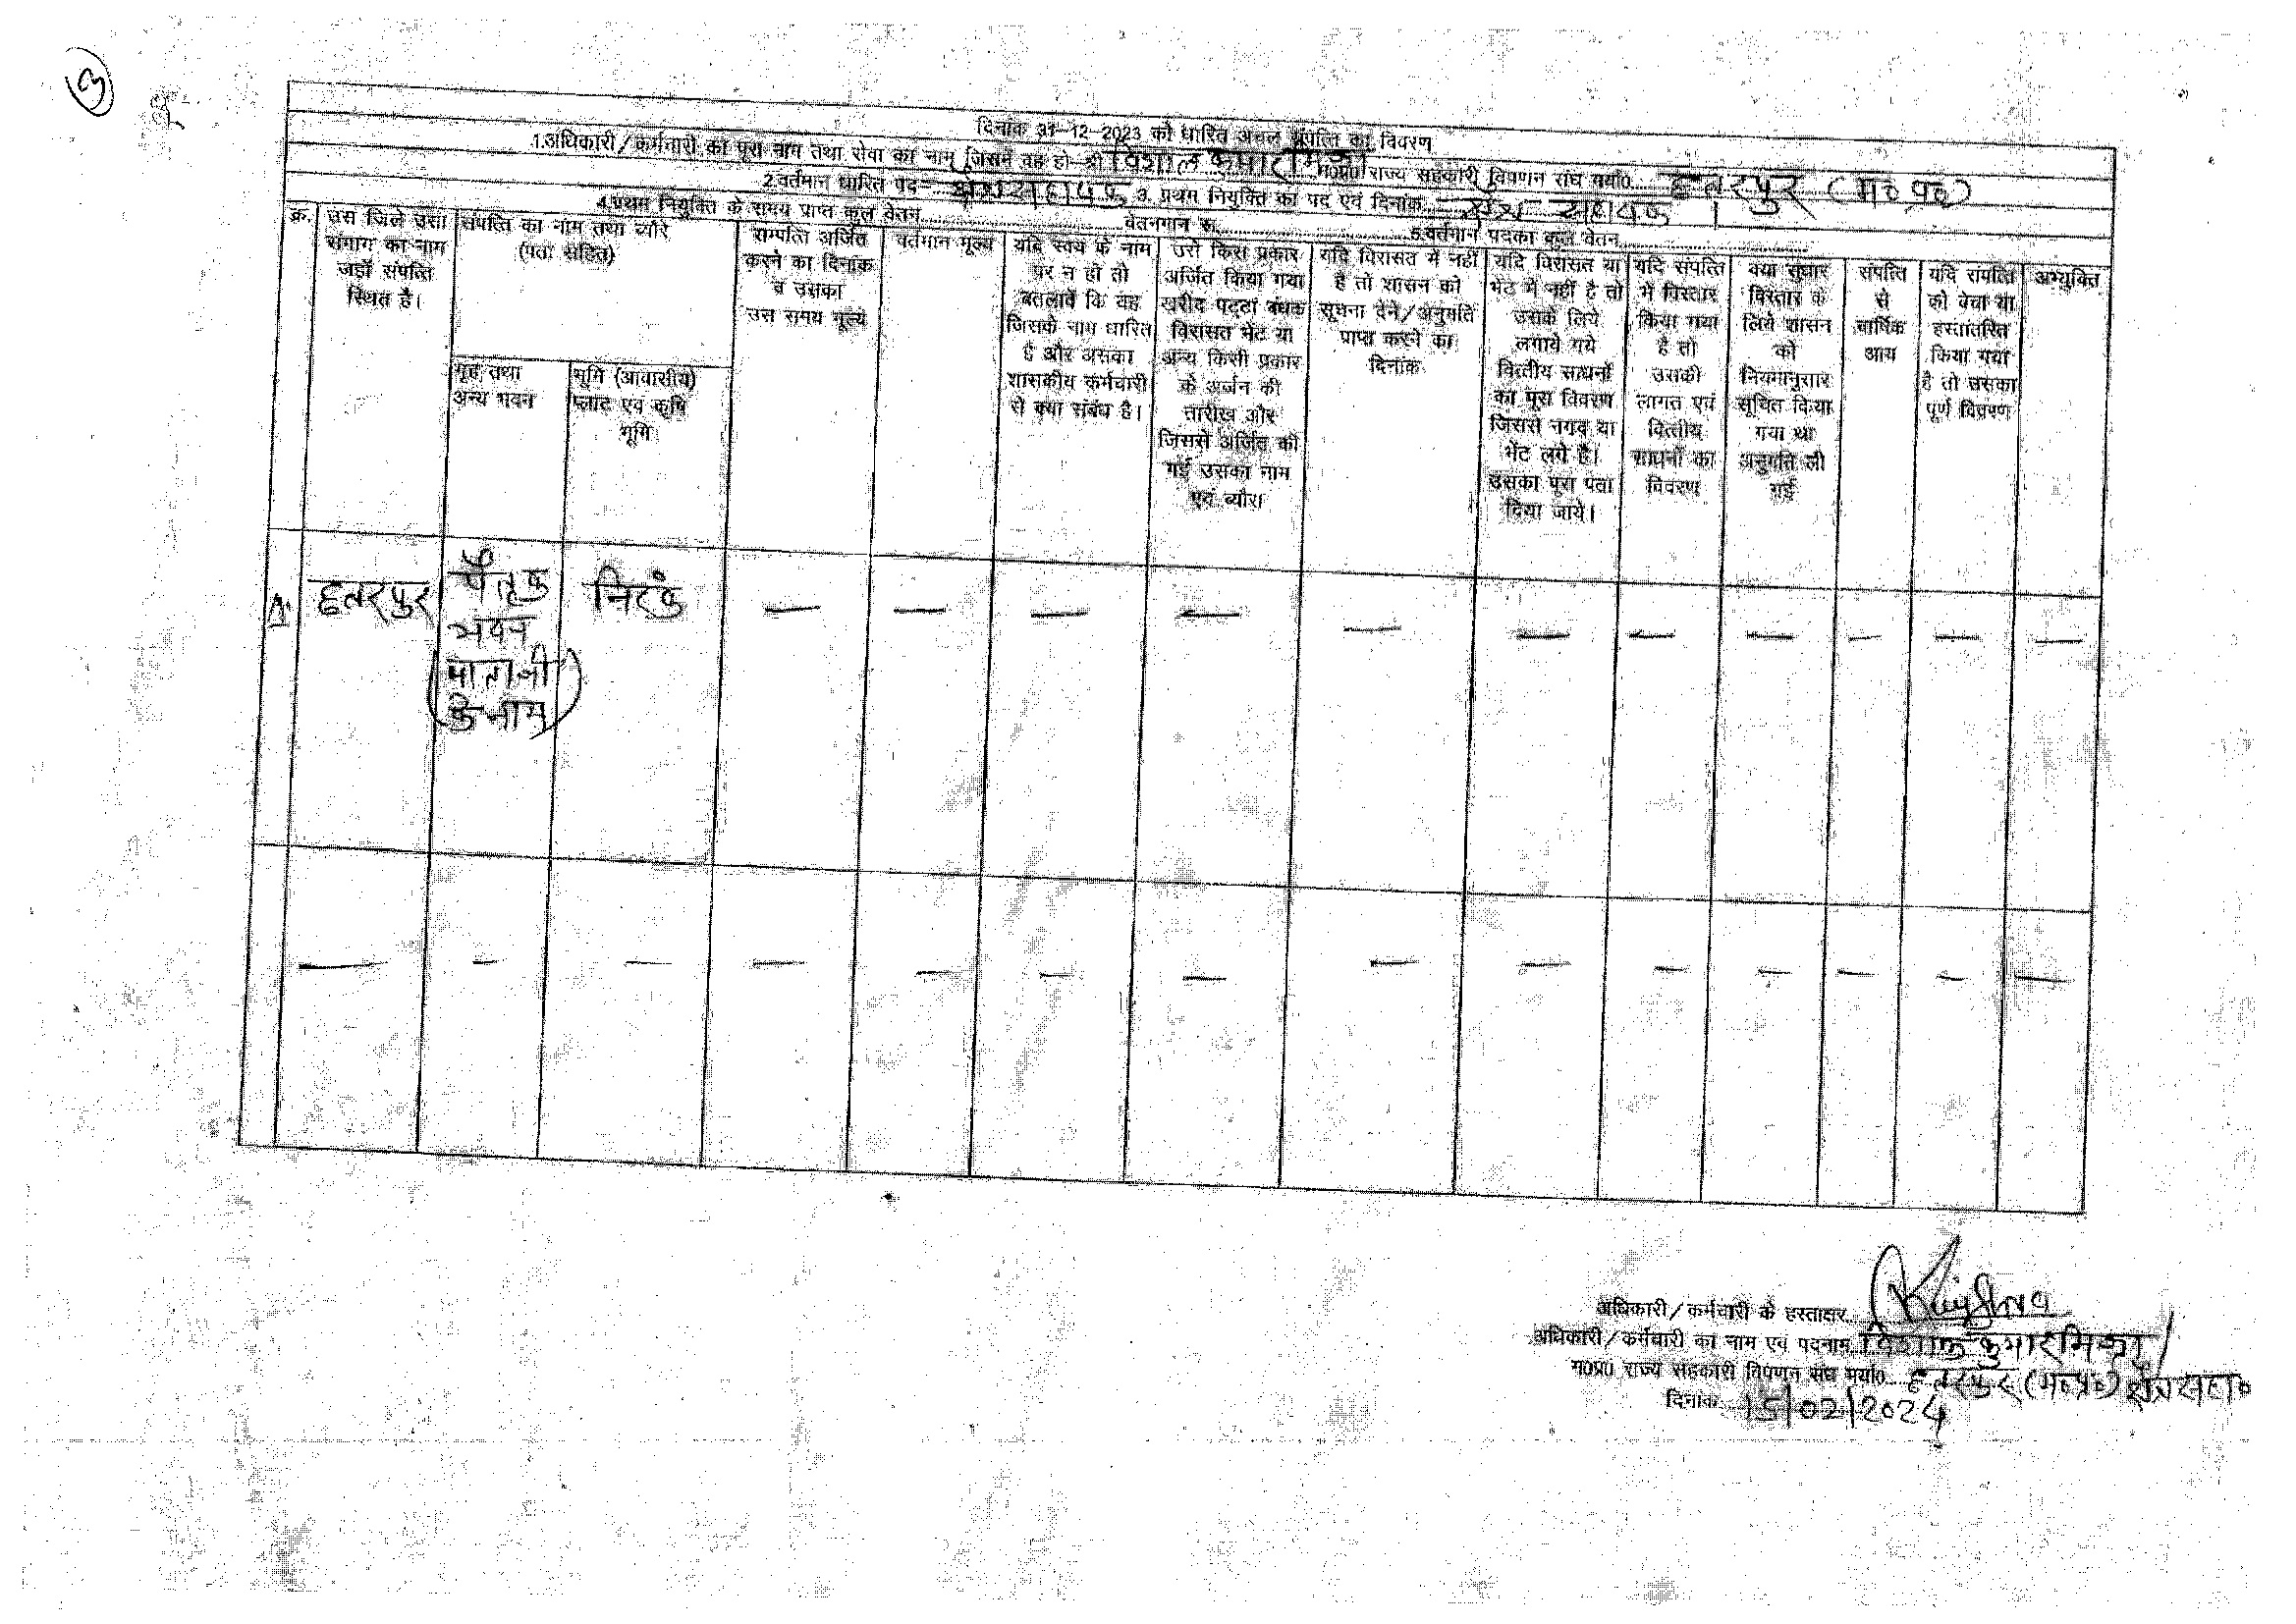 3
दिनांक 31-12-2023 को धारित अचल संपत्ति का विवरण
1.अधिकारी/कर्मचारी का पूरा नाम तथा सेवा का नाम जिसमें वह हो श्री विशाल कुमार मिश्रा म0प्र0 राज्य सहकारी विपणन संघ मर्या0..... छतरपुर (म०प्र०)
2.वर्तमान धारित पद क्षेत्र सहायक 3. प्रथम नियुक्ति का पद एवं दिनांक.. क्षेत्र सहायक
4.प्रथम नियुक्ति के समय प्राप्त कुल वेतन........ वेतनमान रू........ 5.वर्तमान पदका कुल वेतन........
क्र.
उस जिले उसा संभाग का नाम जहाँ संपत्ति स्थित है।
संपत्ति का नाम तथा ब्यौरे (पता सहित)
गृह तथा अन्य भवन
भूमि (आवासीय) प्लाट एवं कृषि भूमि
सम्पत्ति अर्जित करने का दिनांक व उसका उस समय मूल्य
वर्तमान मूल्य
यदि स्वयं के नाम पर न हो तो बतलावें कि वह जिसके नाम धारित है और असका शासकीय कर्मचारी से क्या संबंध है।
उसे किस प्रकार अर्जित किया गया खरीद पट्टा बंधक विरासत भेंट या अन्य किसी प्रकार के अर्जन की तारीख और जिससे अर्जित की गई उसका नाम एवं ब्यौरा।
यदि विरासत में नहीं है तो शासन को सूचना देने/अनुमति प्राप्त करने का दिनांक
यदि विरासत या भेंट में नहीं है तो उसके लिये लगाये गये वित्तीय साधनों का पूरा विवरण जिससे नगद या भेंट लगे है। उसका पूरा पता दिया जाये।
यदि संपत्ति में विस्तार किया गया है तो उसकी लागत एवं वित्तीय साधनों का विवरण
क्या सुधार विस्तार के लिये शासन को नियमानुसार सूचित किया गया था अनुमति ली गई
संपत्ति से वार्षिक आय
यदि संपत्ति को वेचा या हस्तांतरित किया गया है तो उसका पूर्ण विवरण
अभ्युक्ति
1. छतरपुर पैतृक निरंक — — — — — — — — — — —
भवन
(माताजी
के नाम)
— — — — — — — — — — — — — —
अधिकारी/कर्मचारी के हस्ताक्षर..
अधिकारी/कर्मचारी का नाम एवं पदनाम विशाल कुमार मिश्रा
म0प्र0 राज्य सहकारी विपणन संघ मर्या0.. छतरपुर (म०प्र०) क्षेत्र सहा०
दिनांक 15/02/2024